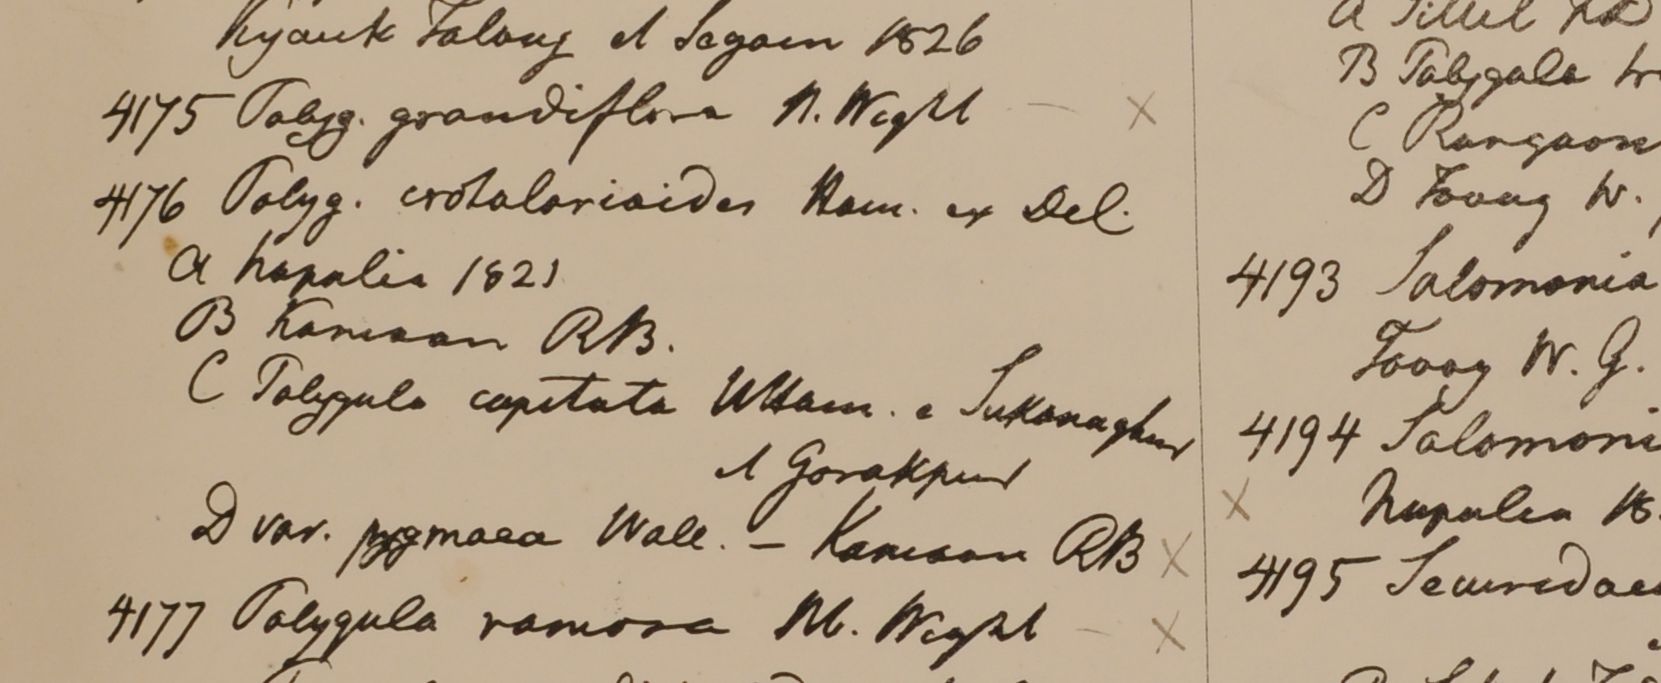 Kyauk Talong et Segaen 1826
4175 Polyg. grandiflora H. Wight
4176 Polyg. crotalarioides Ham. ex Del.
a Napalia 1821
B Kamaon RB.
C Polygula capitata Ham. e Sukanaghur
et Gorakpur
D var. pygmaea Wall. – Kamaon RB
4177 Polygula ramosa H. Wight
B Polygala
C Rangaon
D Tavoy W.
4193 Salomonia
Tavoy W. G.
4194 Salomoni
Napalia 18
4195 Securidaca